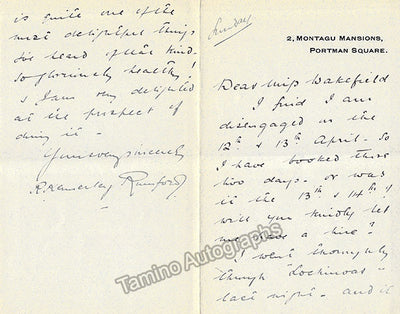 Sunday
2, MONTAGU MANSIONS,
PORTMAN SQUARE.
Dear Miss Wakefield
I find I am
disengaged on the
12th & 13th April. So
I have booked these
two days. or was
it the 13th & 14th?
will you kindly let
me have a line?
I went thoroughly
through Lochinvar
last night. and it
is quite one of the
most delightful things
I've heard of its kind.
So gloriously healthy!
& I am very delighted
at the prospect of
doing it.
Yours very sincerely
R. Kennerley Rumford
Tamino Autographs